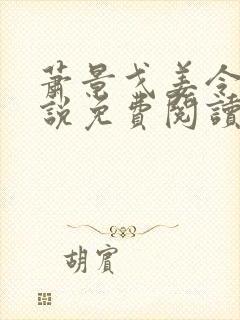 蕭景戈姜令
說免費閱讀
胡賓